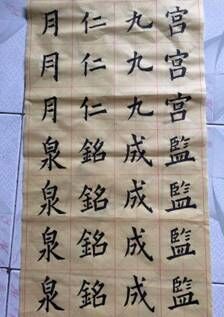 宫宫宫監監監監
九九九成成成成
仁仁仁銘銘銘銘
月月月泉泉泉泉